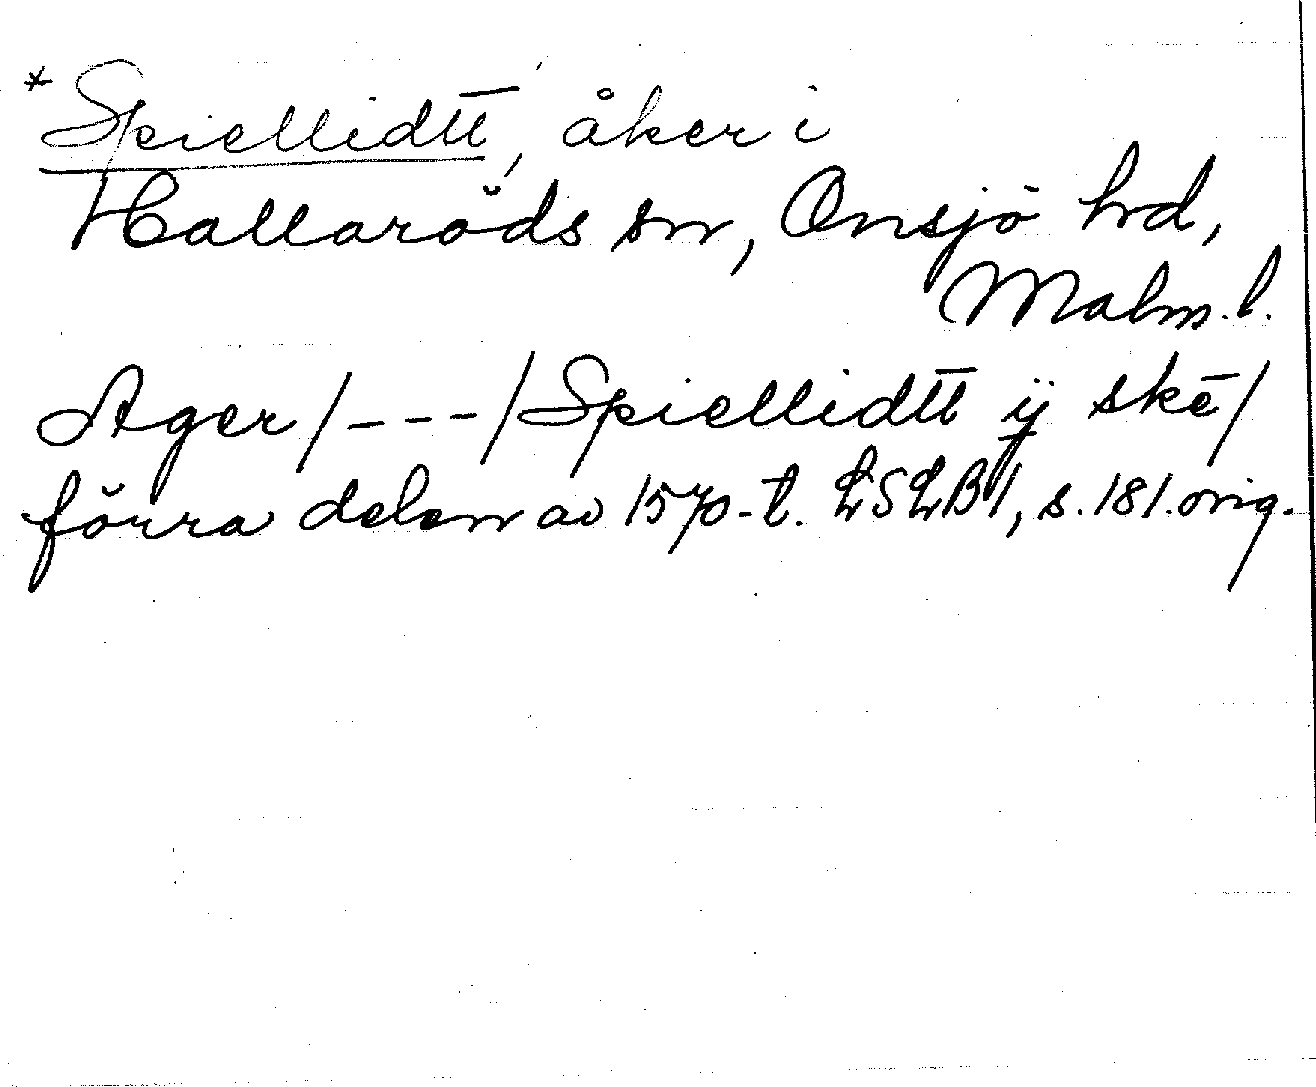 *Spiellidtt, åker i
Hallaröds sn, Onsjö hd,
Malm. l.
Ager/---/Spiellidtt ij skē/
förra delen av 1570-t. LSLB1, s. 181. orig.